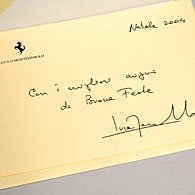 Natale 2004
LUCA DI MONTEZEMOLO
Con i migliori auguri
di Buone Feste